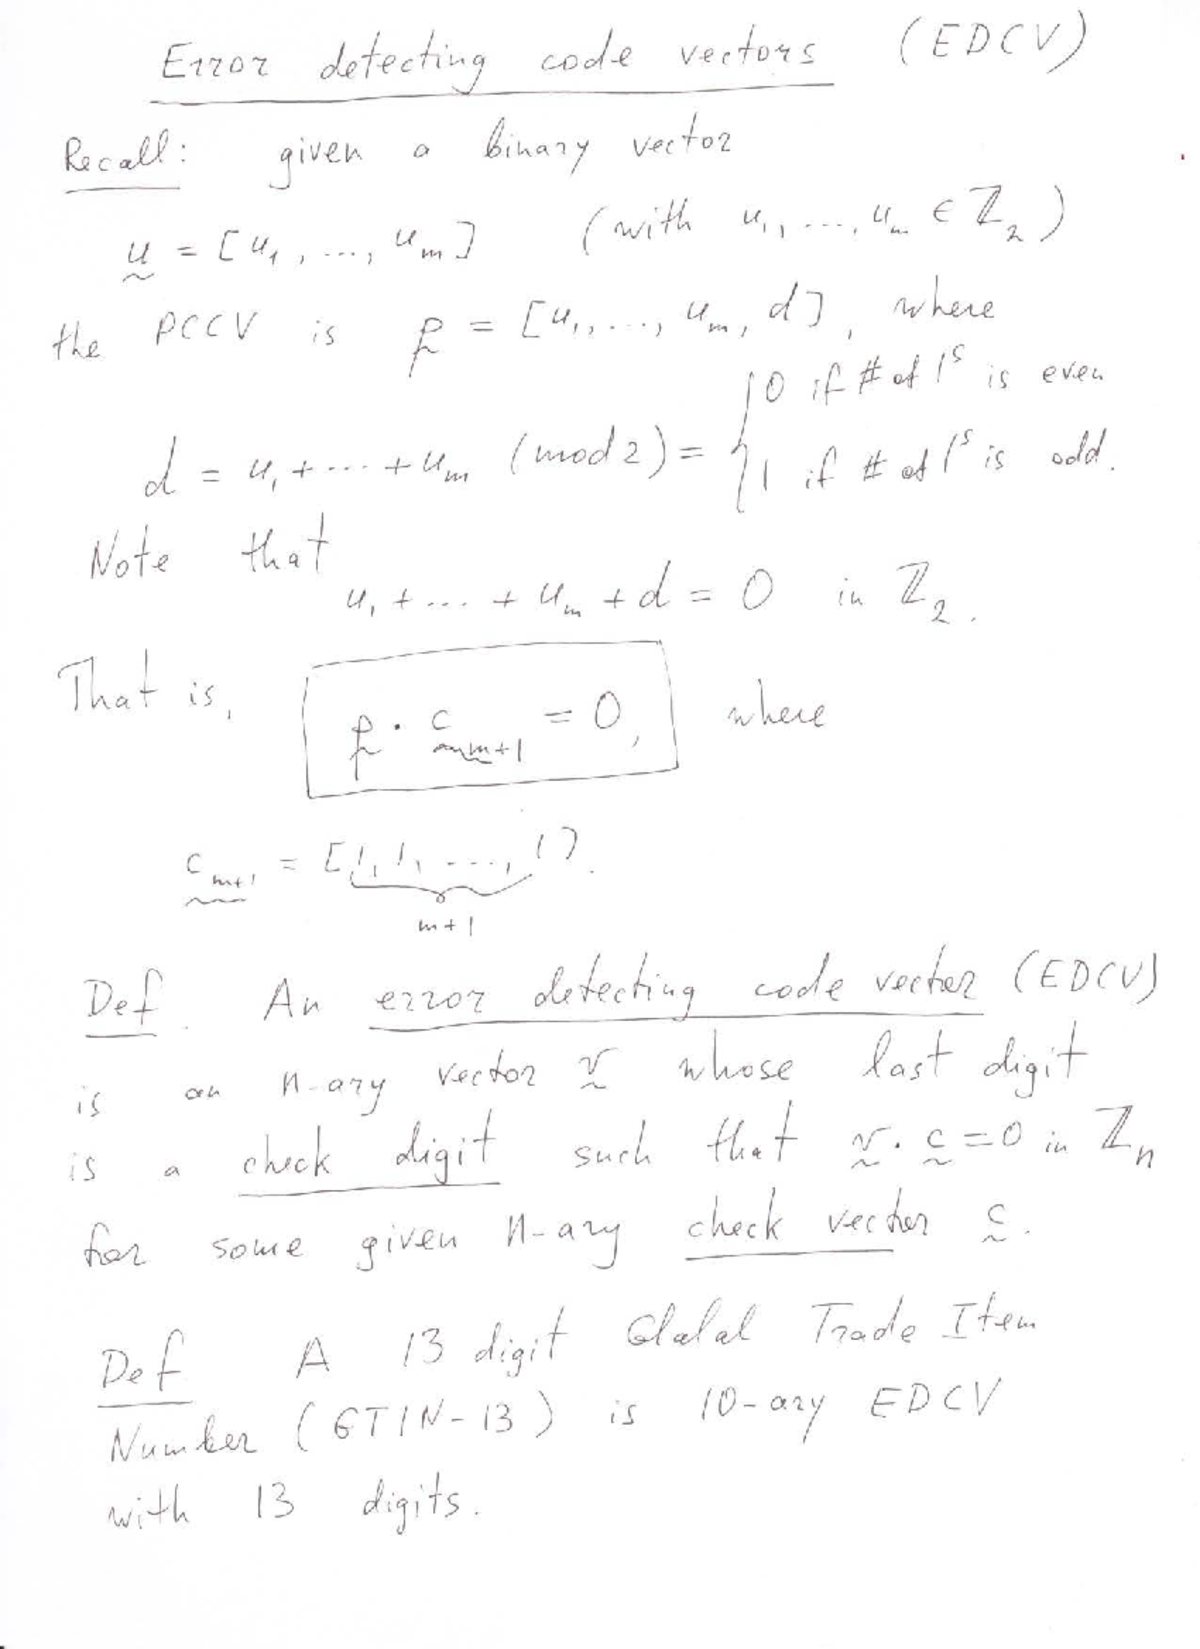 Error detecting code vectors (EDCV)
Recall: given a binary vector
u = [u₁, ..., uₘ] (with u₁, ..., uₘ ∈ ℤ₂)
the PCCV is p = [u₁, ..., uₘ, d], where
d = u₁ + ... + uₘ (mod 2) = { 0 if # of 1ˢ is even
1 if # of 1ˢ is odd.
Note that
u₁ + ... + uₘ + d = 0 in ℤ₂.
That is, p · cₘ₊₁ = 0, where
cₘ₊₁ = [1, 1, ..., 1].
m+1
Def. An error detecting code vector (EDCV)
is an n-ary vector v whose last digit
is a check digit such that v · c = 0 in ℤₙ
for some given n-ary check vector c.
Def A 13 digit Global Trade Item
Number (GTIN-13) is 10-ary EDCV
with 13 digits.